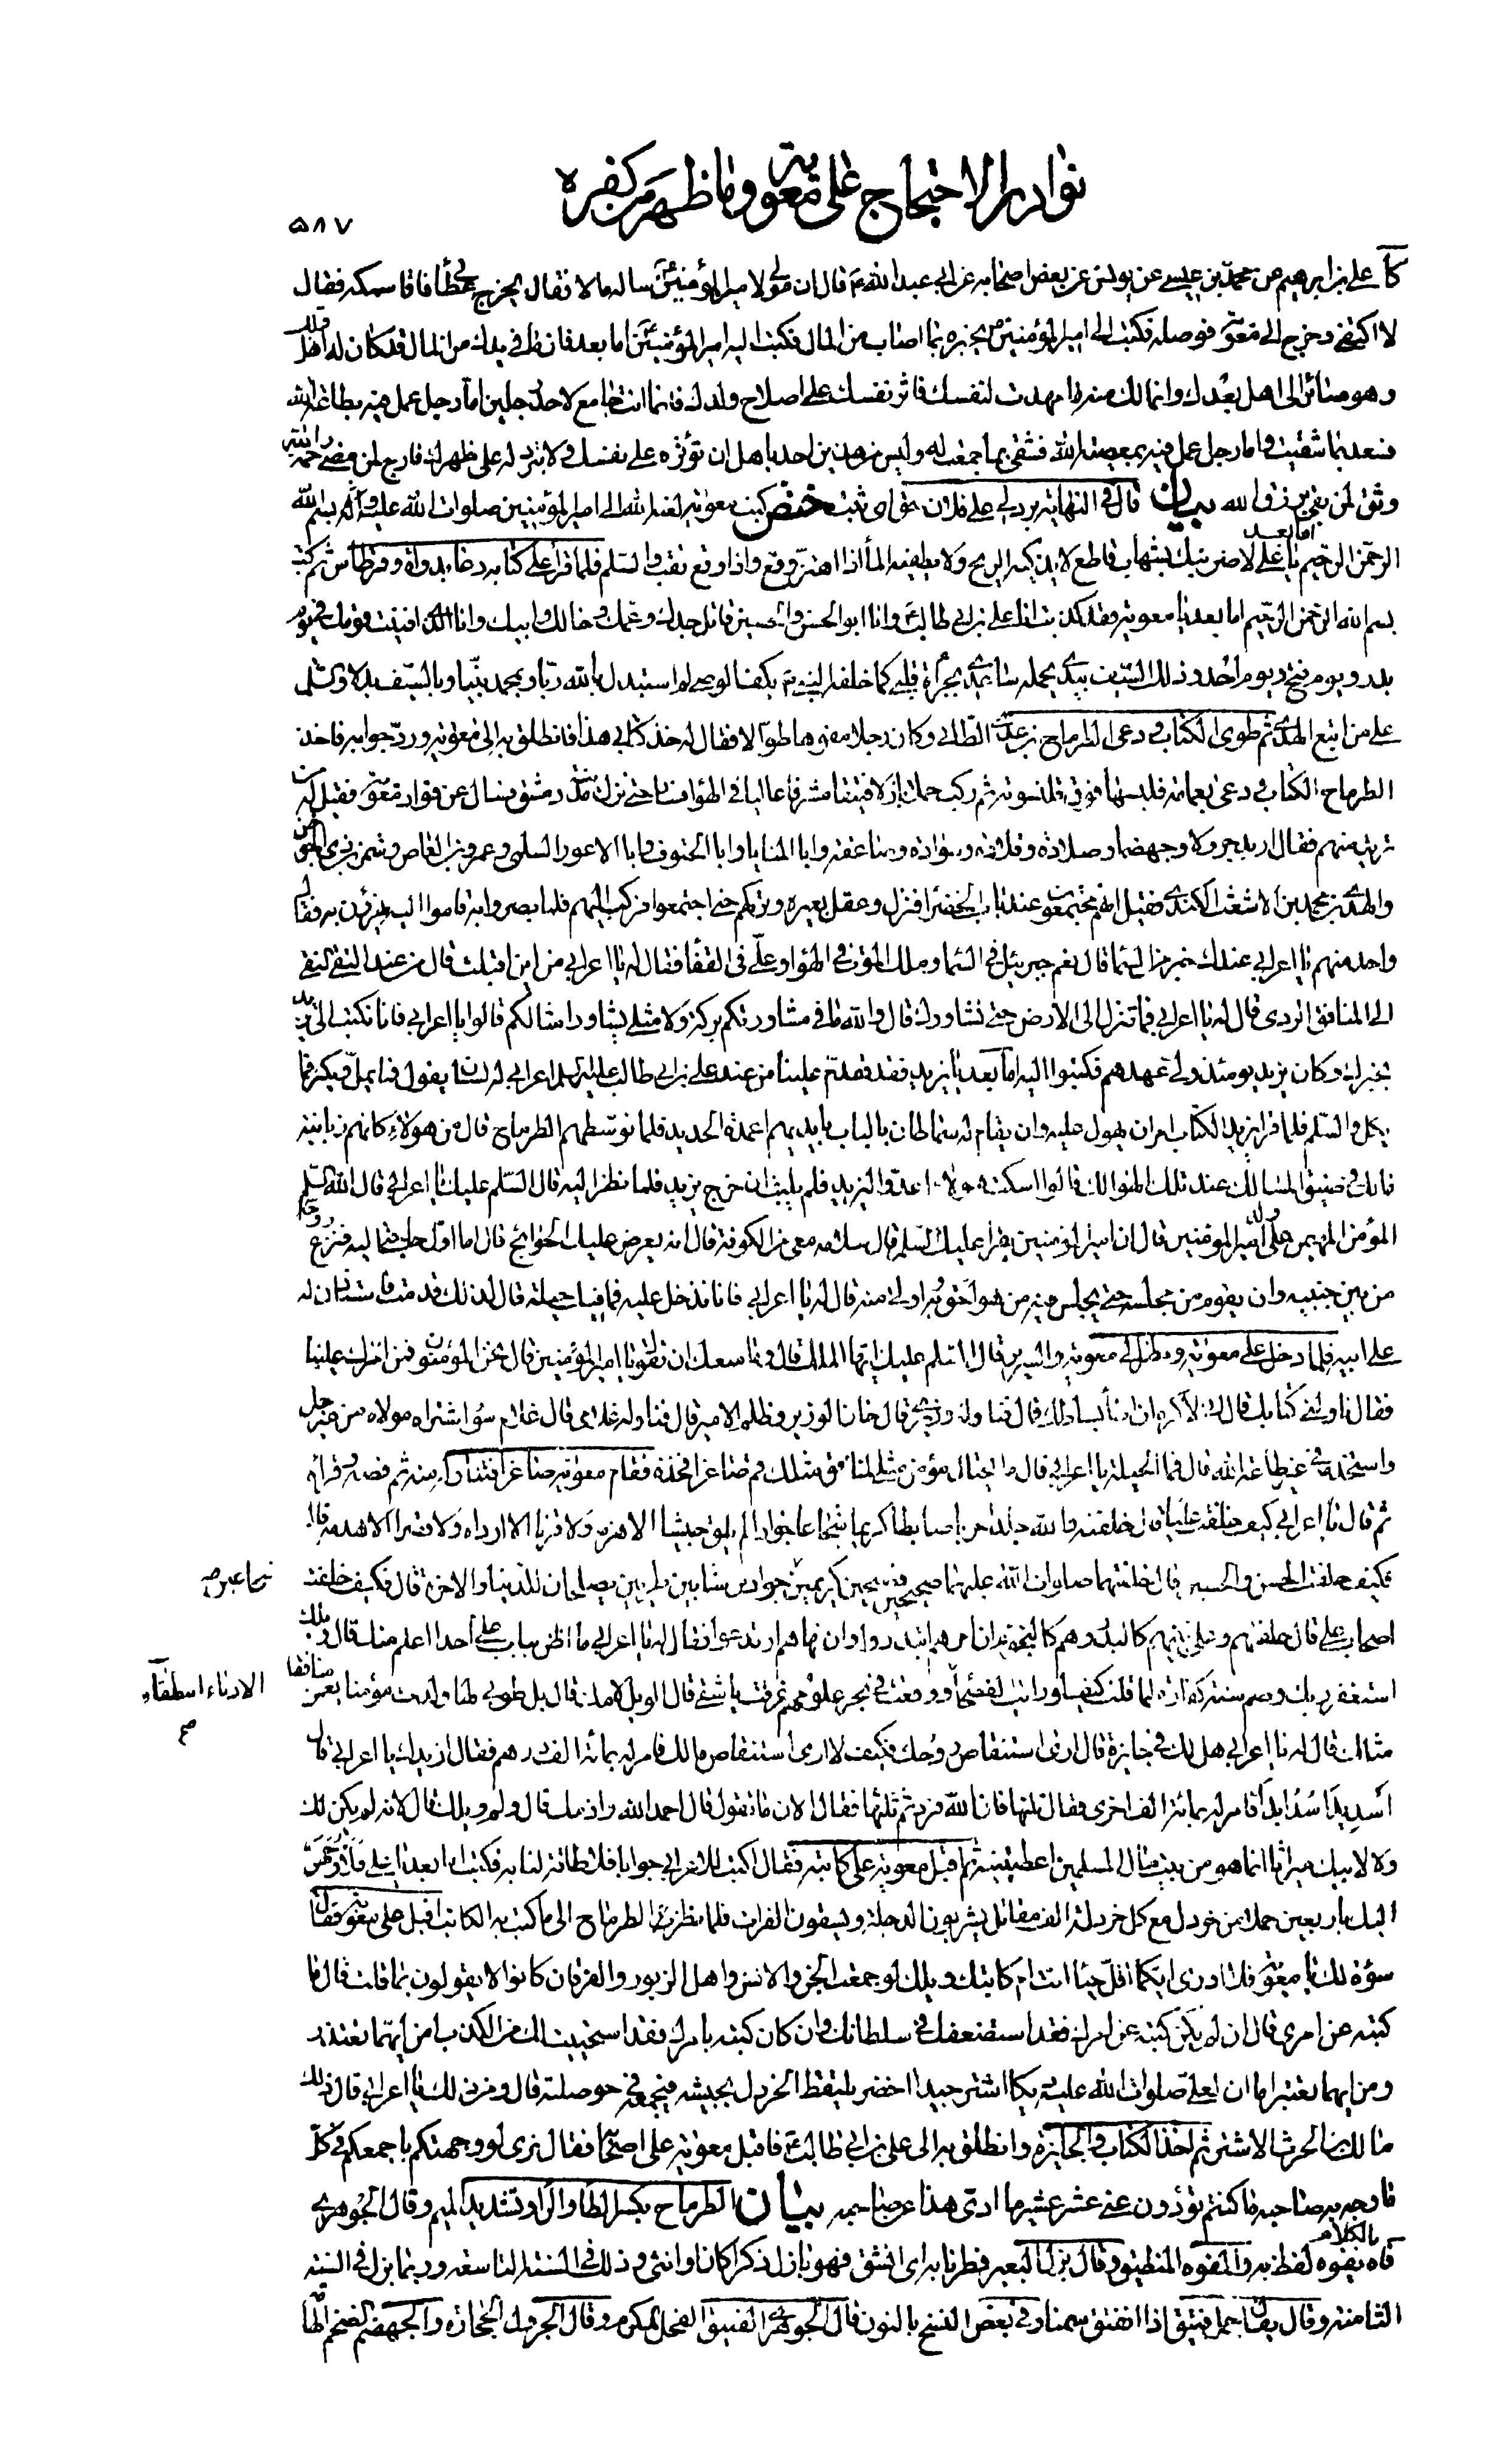 نوادر الاحتجاج على معوية وما ظهر من كفره
٥٨٧
كا على بن ابرهيم عن محمد بن عيسى عن يونس عن بعض اصحابه عن ابى عبد الله ع قال ان مولى لامير المؤمنين ع سأله مالا فقال يخرج عطائى فاقاسمكه فقال
لا اكتفى وخرج الى معوية فوصله فكتب الى امير المؤمنين ع يخبره بما اصاب من المال فكتب اليه امير المؤمنين ع اما بعد فان ما فى يدك من المال قد كان له اهل قبلك
وهو صائر الى اهل بعدك وانما لك منه ما مهدت لنفسك فاثر نفسك على اصلاح ولدك فانما انت جامع لاحد رجلين اما رجل عمل فيه بطاعة الله
فسعد بما شقيت واما رجل عمل فيه بمعصية الله فشقى بما جمعت له وليس من هذين احد باهل ان تؤثره على نفسك ولا تبرد له على ظهرك فارج لمن مضى رحمة الله
وثق لمن بقى برزق الله بيان قال فى النهاية برد لى على فلان حق اى ثبت ختص كتب معوية لعنه الله الى امير المؤمنين صلوات الله عليه وآله بسم الله
الرحمن الرحيم اما بعد يا على لاضربنك بشهاب قاطع لا يدكنه الريح ولا يطفيه الماء اذا اهتز وقع واذا وقع نقب والسلم فلما قرأ على ع كتابه دعا بدواة وقرطاس ثم كتب
بسم الله الرحمن الرحيم اما بعد يا معوية فقد كذبت انا على بن ابى طالب ع وانا ابو الحسن والحسين قاتل جدك وعمك وخالك وابيك وانا الذى افنيت قومك فى يوم
بدر ويوم فتح ويوم احد وذلك السيف بيدى يحمله ساعدى بجرأة قلبى كما خلفه النبى ص بكف الوصى لم استبدل بالله ربا وبمحمد نبيا وبالسيف بدلا والسلم
على من اتبع الهدى ثم طوى الكتاب ودعى الطرماح بن عدى الطائى وكان رجلا مفوها طوالا فقال له خذ كتابى هذا فانطلق به الى معوية ورد جوابه فاخذ
الطرماح الكتاب ودعى بعمامة فلبسها فوق قلنسوته ثم ركب جملا بازلا فتيقا مشرفا عاليا فى الهواء فسار حتى نزل مدينة دمشق فسال عن قواد معوية فقيل له من
تريد منهم فقال اريد جرولا وجهضما وصلادة وقلادة وسوادة وصاعقة وابا المنايا وابا الحتوف وابا الاعور السلمى وعمرو بن العاص وشمر بن ذى الجوشن
والهدى بن محمد بن الاشعث الكندى فقيل انهم يجتمعون عند باب الخضراء فنزل وعقل بعيره وتركهم حتى اجتمعوا فركب اليهم فلما بصروا به قاموا اليه يهزؤن به فقال
واحد منهم يا اعرابى عندك خبر من السماء قال نعم جبرئيل فى السماء وملك الموت فى الهواء وعلى فى القفاء فقال له يا اعرابى من اين اقبلت قال من عند التقى النقى
الى المنافق الردى قال له يا اعرابى فما تنزل الى الارض حتى نشاورك قال والله ما فى مشاورتكم بركة ولا مثلى يشاور امثالكم قالوا يا اعرابى فانا نكتب الى يزيد
بخبرك وكان يزيد يومئذ ولى عهدهم فكتبوا اليه اما بعد يا يزيد فقد قدم علينا من عند على بن ابى طالب عليه السلم اعرابى له لسان يقول فما يمل ويكثر فما
يكل والسلم فلما قرأ يزيد الكتاب امر ان يهول عليه وان يقام له سماطان بالباب بايديهم اعمدة الحديد فلما توسطهم الطرماح قال من هولاء كانهم زبانية
مالك فى ضيق المسالك عند تلك الهوالك قالوا اسكت هؤلاء اعدوا ليزيد فلم يلبث ان خرج يزيد فلما نظر اليه قال السلم عليك يا اعرابى قال الله السلم
المؤمن المهيمن وعلى ولد امير المؤمنين قال ان امير المؤمنين يقرأ عليك السلم قال سلامه معى من الكوفة قال انه يعرض عليك الحوائج قال اما اول حاجتى اليه فنزع روحه
من بين جنبيه وان يقوم من مجلسه حتى يجلس فيه من هو احق به واولى منه قال له يا اعرابى فانا ندخل عليه فما فيك حيلة قال لذلك قدمت فاستاذن له
على ابيه فلما دخل على معوية ونظر الى معوية والسرير قال السلم عليك ايها الملك قال وما منعك ان تقول يا امير المؤمنين قال نحن المؤمنون فمن امرك علينا
فقال ناولنى كتابك قال انى لاكره ان اطأ بساطك قال فناوله وزيرى قال خان الوزير وظلم الامير قال فناوله غلامى قال غلام سوء اشتراه مولاه من غير حل
واستخدمه فى غير طاعة الله قال فما الحيلة يا اعرابى قال ما يحتال مؤمن مثلى لمنافق مثلك قم صاغرا فخذه فقام معوية صاغرا فتناوله منه ثم فصه وقرأه
ثم قال يا اعرابى كيف خلفت عليا قال خلفته والله جلدا حريا ضابطا كريما شجاعا جوادا لم يلق جيشا الا هزمه ولا قرنا الا ارداه ولا قصرا الا هدمه قال
فكيف خلفت الحسن والحسين قال خلفتهما صلوات الله عليهما صحيحين فصيحين كريمين جوادين شابين طريين يصلحان للدنيا والاخرة قال فكيف خلفت
اصحاب على قال خلفتهم وعلى ع بينهم كالبدر وهم كالنجوم ان امرهم ابتدروا وان نهاهم ارتدعوا فقال له يا اعرابى ما اظن بباب على احدا اعلم منك قال ويلك
استغفر ربك وصم سنة كفارة لما قلت كيف لو رايت الفصحاء ووقعت فى بحر علومهم غرقت يا شقى قال الويل لامك قال بل طوبى لها ولدت مؤمنا يغمز منافقا
مثلك قال له يا اعرابى هل لك فى جائزة قال ارى استنقاص روحك فكيف لا ارى استنقاص مالك فامر له بمائة الف درهم فقال ازيدك يا اعرابى قال
اسديدا سد ابدا فامر له بمائة الف اخرى فقال ثلثها فان الله فرد ثم ثلثها فقال الان ما تقول قال احمد الله واذمك قال ولم ويلك قال لانه لم يكن لك
ولا لابيك ميراثا انما هو من بيت مال المسلمين اعطيتنيه ثم اقبل معوية على كاتبه فقال اكتب للاعرابى جوابا فلا طاقة لنا به فكتب اما بعد يا على فلاوجهن
اليك باربعين حملا من خردل مع كل خردلة الف مقاتل يشربون الدجلة ويسقون الفرات فلما نظر الطرماح الى ما كتب به الكاتب اقبل على معوية فقال
سوءة لك يا معوية فلا ادرى ايكما اقل حياء انت ام كاتبك ويلك لو جمعت الجن والانس واهل الزبور والفرقان كانوا لا يقولون بما قلت قال ما
كتبه عن امرى قال ان لم يكن كتبه عن امرك فقد استضعفك فى سلطانك وان كان كتبه بامرك فقد استحييت لك من الكذب امن ايهما تعتذر
ومن ايهما تعتبر اما ان لعلى صلوات الله عليه ديكا اشتر جيدا اخضر يلتقط الخردل بجيشه فيجمعه فى حوصلته قال ومن ذلك يا اعرابى قال ذلك
مالك بن الحرث الاشتر ثم اخذ الكتاب والجائزة وانطلق به الى على بن ابى طالب ع فاقبل معوية على اصحابه فقال نرى لو وجهتكم باجمعكم فى كل
ما وجه به صاحبه ما كنتم تؤدون عنى عشر عشير ما ادى هذا عن صاحبه بيان الطرماح بكسر الطاء والراء وتشديد الميم وقال الجوهرى
فاه بالكلام يفوه لفظ به والمفوه المنطيق وقال بزل البعير فطر نابه اى انشق فهو بازل ذكرا كان او انثى وذلك فى السنة التاسعة وربما بزل فى السنة
الثامنة وقال يقال جمل فتيق اذا انفتق سمنا وفى بعض النسخ بالنون قال الجوهرى الفنيق الفحل المكرم وقال الجرول الحجارة والجهضم الضخم الهامة